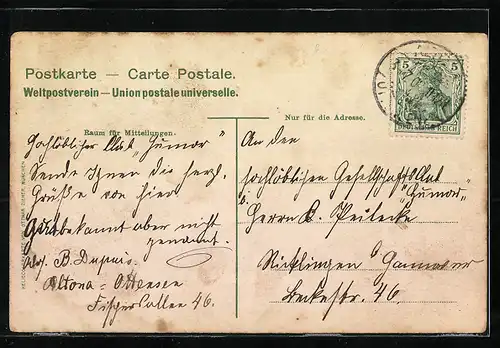 Postkarte — Carte Postale.
Weltpostverein — Union postale universelle.
Nur für die Adresse.
Raum für Mitteilungen.
5 5
DEUTSCHES REICH
Hochlöblicher Club "Humor"
Sende Ihnen die herzl.
Grüße von hier
Gutbekannt aber nicht
genannt.
B. Dupuis.
Altona = Ottensen
Fischers Allee 46.
An den
hochlöblichen Gesellschaftsclub
"Humor"
Herrn K. Peilecke
Ricklingen b Hannover
Beckestr. 46.